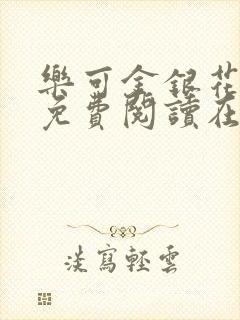 樂可金銀花
免費閱讀在
淡寫輕雲